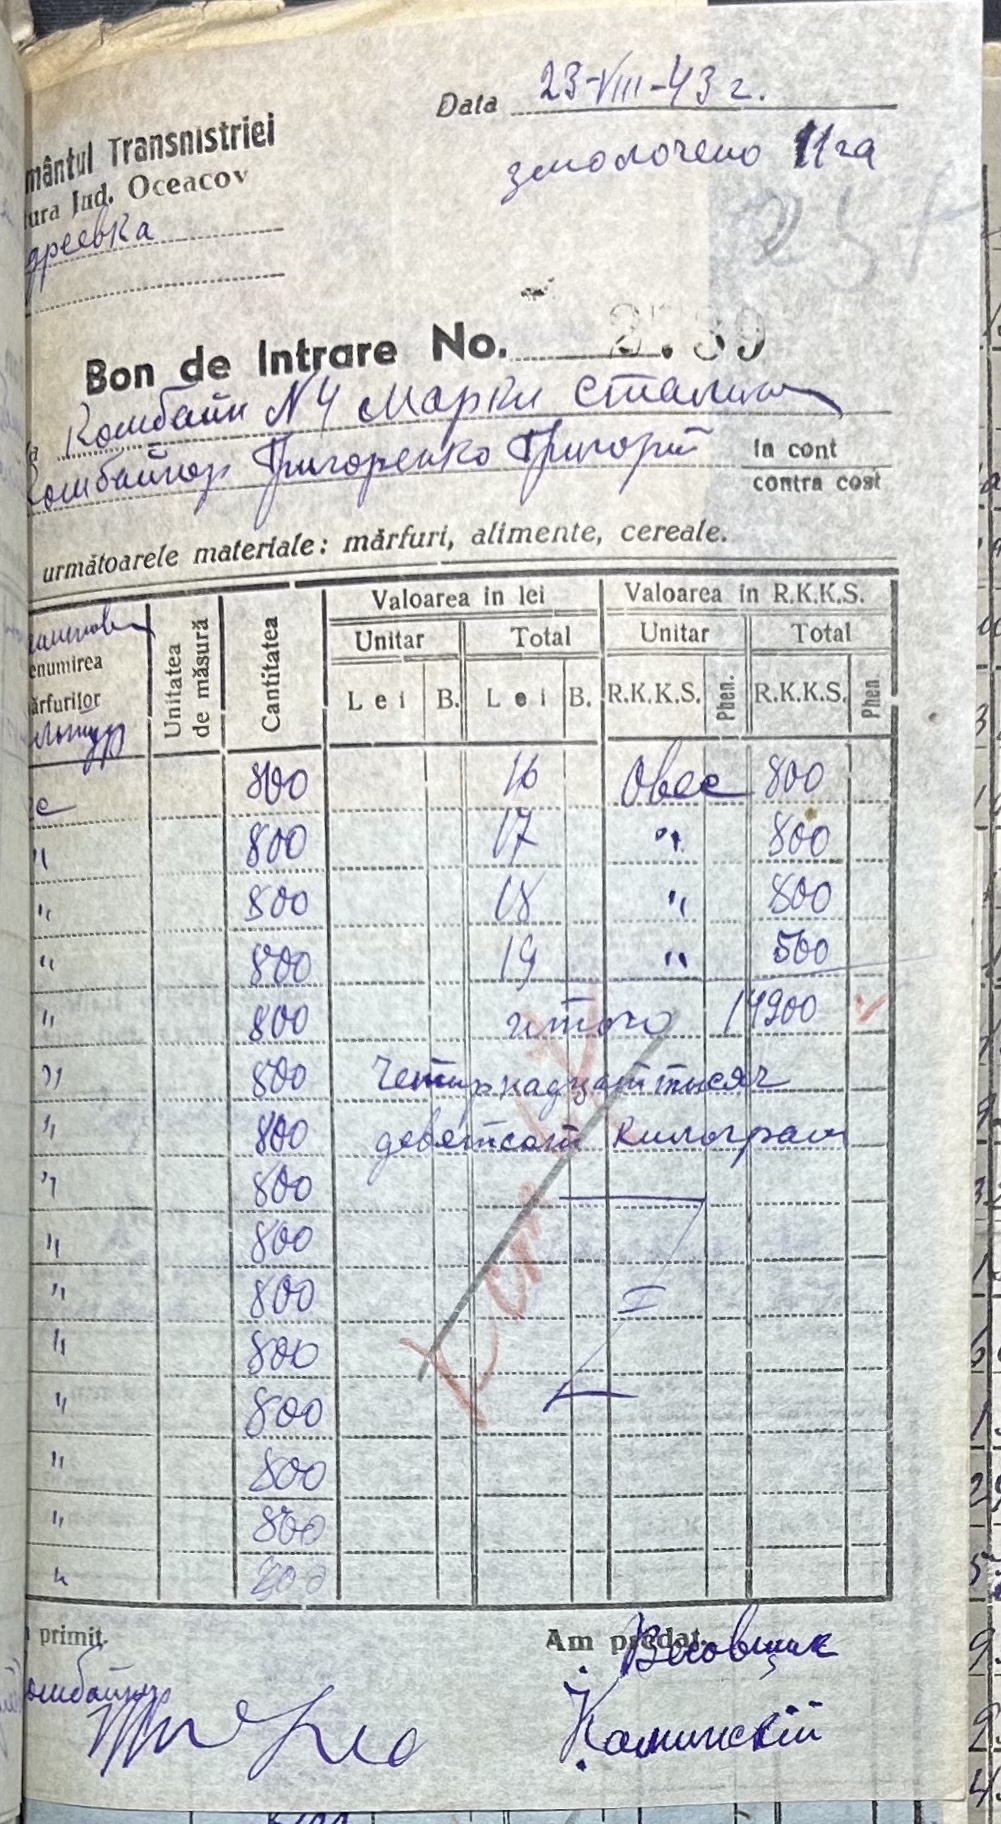 Data 23-VIII-43 г.
змолочено 11 га
mântul Transnistriei
ura Jud. Oceacov
дреевка
Bon de Intrare No. 2.39
Комбайн №4 Марки Сталин
Комбайнор Григоренко Григорій
In cont
contra cost
următoarele materiale: mărfuri, alimente, cereale.
enumirea
ărfurilor
Unitatea de măsură
Cantitatea
Valoarea in lei
Valoarea in R.K.K.S.
Unitar Total Unitar Total
Lei B. Lei B. R.K.K.S. Phen. R.K.K.S. Phen.
с 800 16 Овес 800
" 800 17 " 800
" 800 18 " 800
" 800 19 " 500
" 800 итого 14900
" 800 Четирнадцат тысяч
" 800 девятсот килограм
" 800
" 800
" 800
" 800
" 800
" 800
" 800
" 800
primit. Am predat.
Весовщик
омбайнор
Каминскій